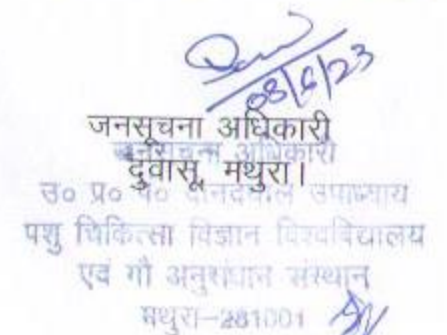 08/6/23
जनसूचना अधिकारी
जनसूचना अधिकारी
दुवासू, मथुरा।
उ० प्र० पं० दीनदयाल उपाध्याय
पशु चिकित्सा विज्ञान विश्वविद्यालय
एवं गौ अनुसंधान संस्थान
मथुरा-281001